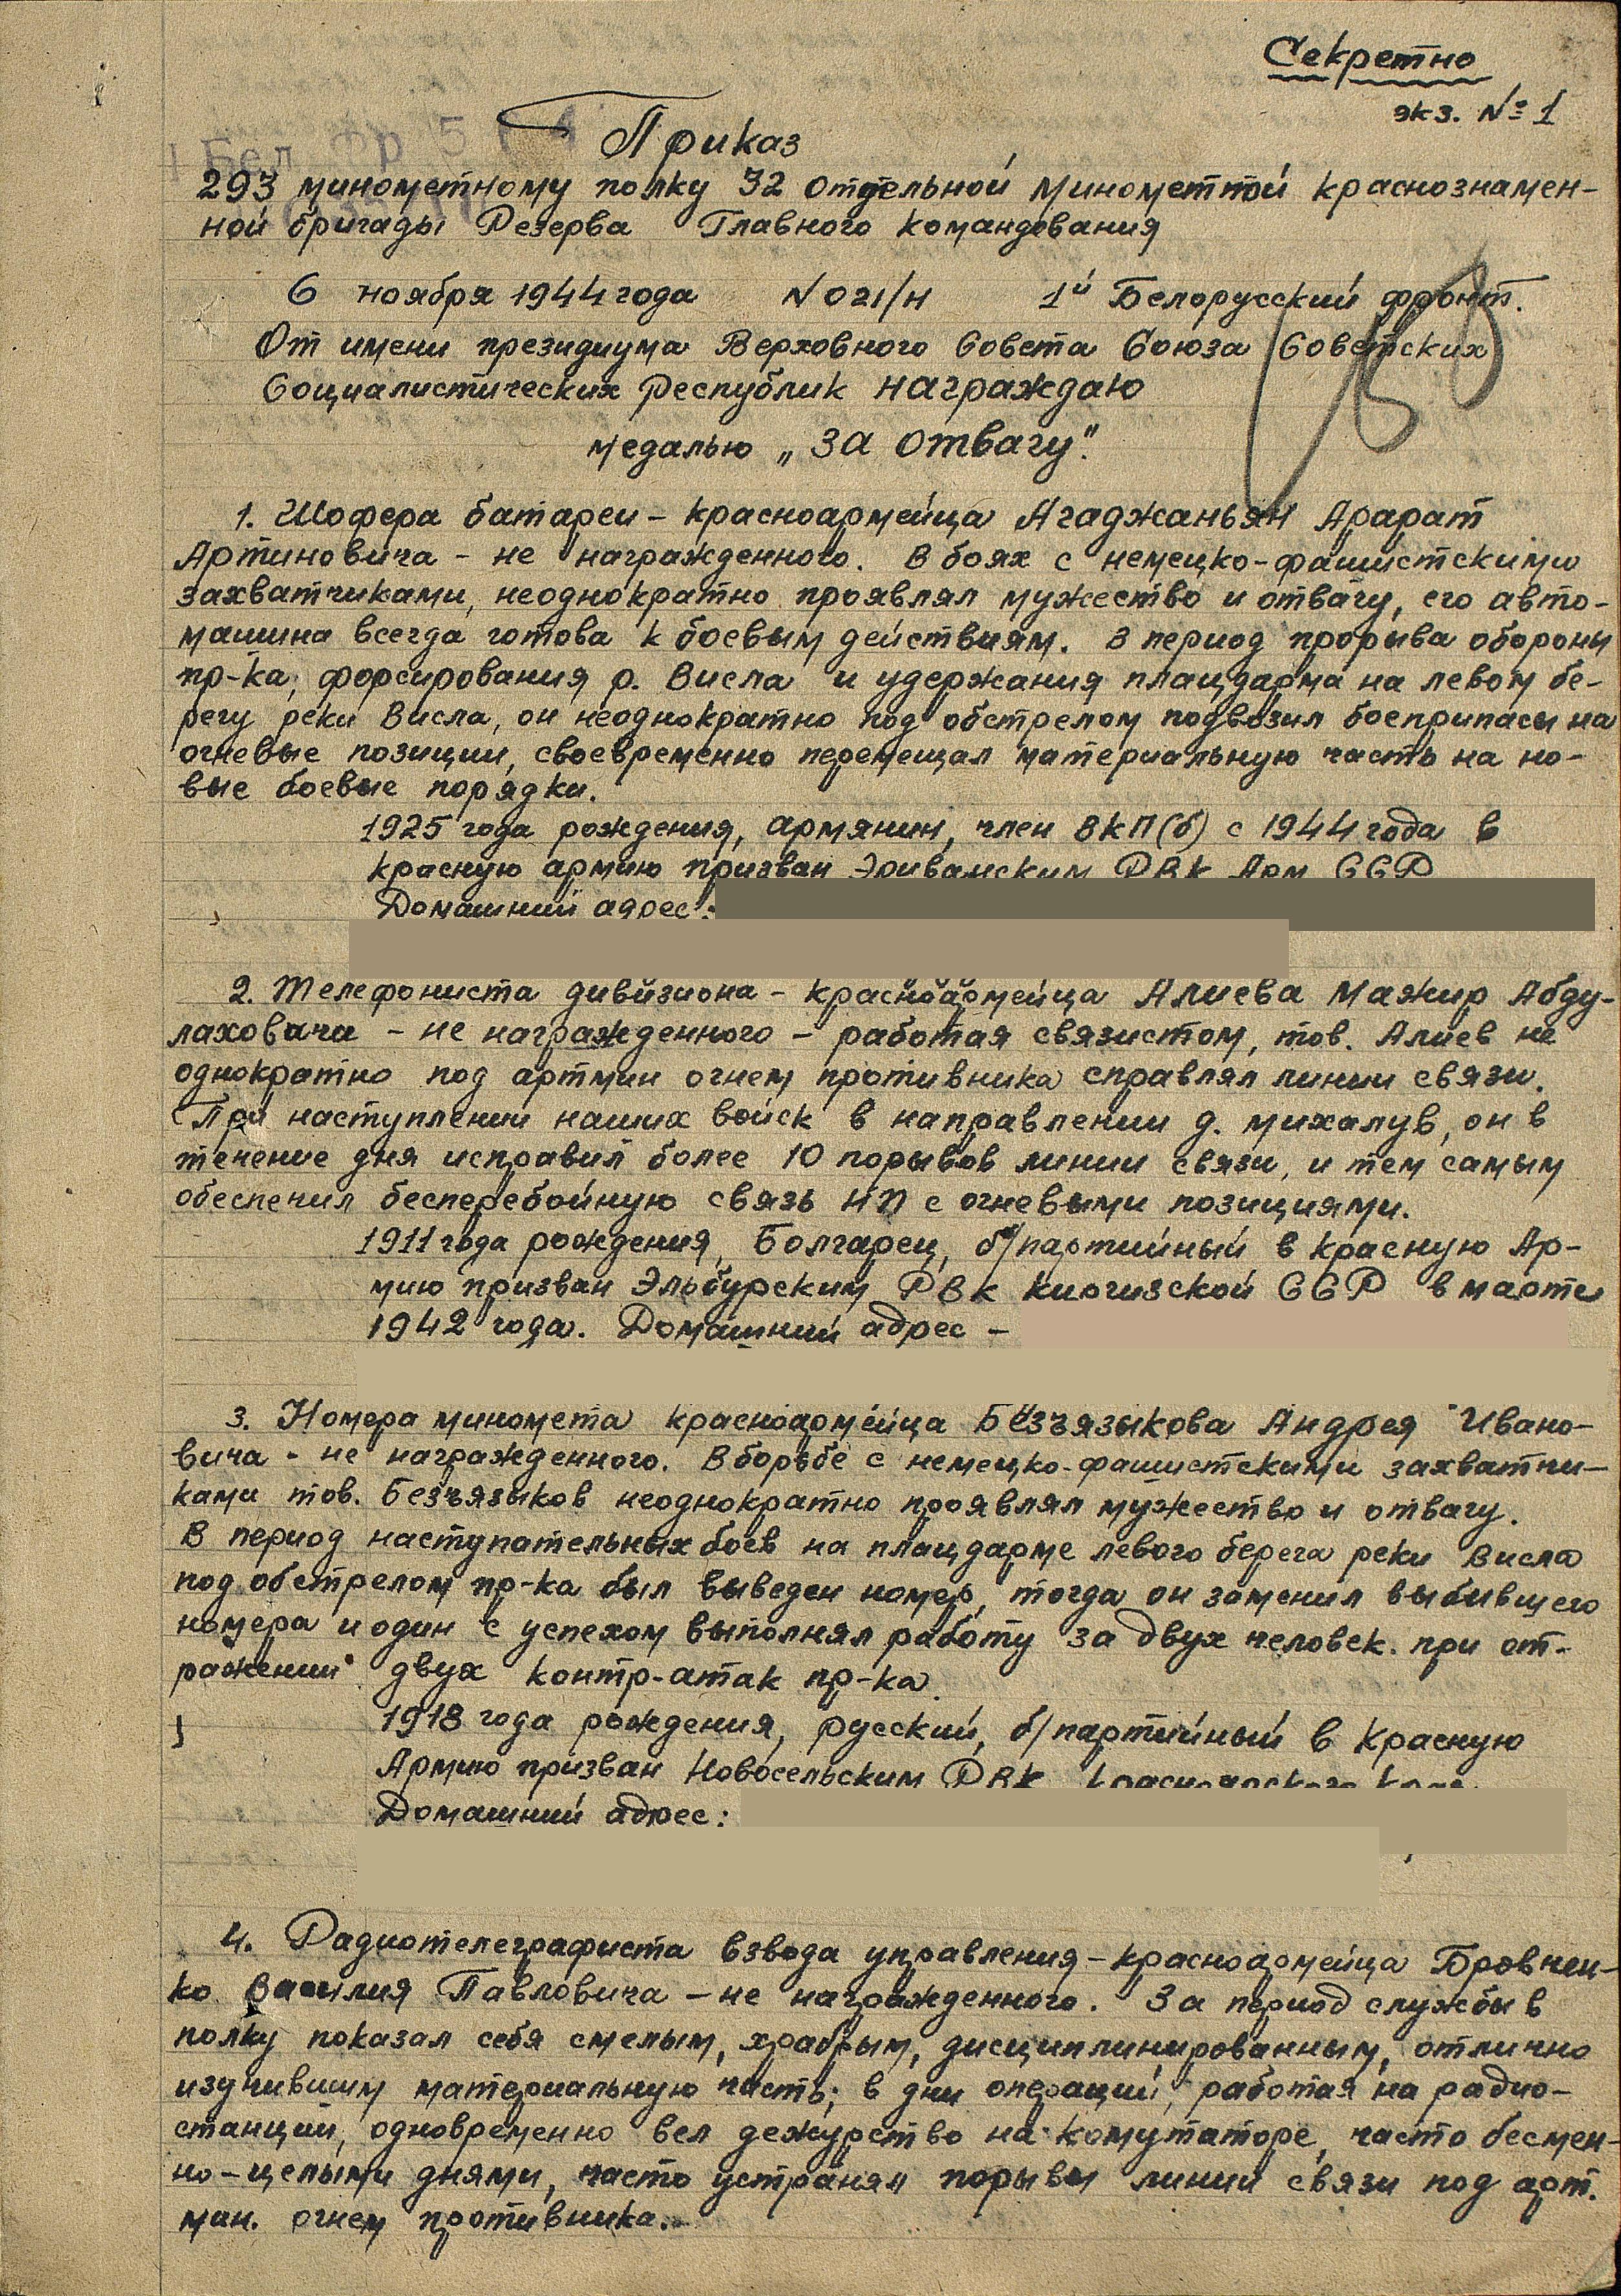 Секретно
экз. № 1
1 Бел фр
Приказ
293 минометному полку 32 отдельной минометной краснознамен-
ной бригады Резерва Главного командования
6 ноября 1944 года N 021/н 1й Белорусский фронт.
От имени президиума Верховного Совета Союза Советских
Социалистических Республик награждаю
медалью „За отвагу".
1. Шофера батареи - красноармейца Агаджаньян Арарат
Артиновича - не награжденного. В боях с немецко-фашистскими
захватчиками, неоднократно проявлял мужество и отвагу, его авто-
машина всегда готова к боевым действиям. В период прорыва обороны
пр-ка, форсирования р. Висла и удержания плацдарма на левом бе-
регу реки Висла, он неоднократно под обстрелом подвозил боеприпасы на
огневые позиции, своевременно перемещал материальную часть на но-
вые боевые порядки.
1925 года рождения, армянин, член ВКП(б) с 1944 года в
красную армию призван Эриванским РВК Арм. ССР
Домашний адрес:
2. Телефониста дивизиона - красноармейца Алиева Мажир Абду-
лаховича - не награжденного - работая связистом, тов. Алиев не
однократно под артмин огнем противника справлял линии связи.
При наступлении наших войск в направлении д. михалув, он в
течение дня исправил более 10 порывов линии связи, и тем самым
обеспечил бесперебойную связь НП с огневыми позициями.
1911 года рождения, Болгарец, б/партийный в красную Ар-
мию призван Эльбурским РВК Киргизской ССР в марте
1942 года. Домашний адрес -
3. Номера миномета красноармейца Безъязыкова Андрея Ивано-
вича - не награжденного. В борьбе с немецко-фашистскими захватчи-
ками тов. Безъязыков неоднократно проявлял мужество и отвагу.
В период наступательных боев на плацдарме левого берега реки Висла
под обстрелом пр-ка был выведен номер, тогда он заменил выбившего
номера и один с успехом выполнял работу за двух человек. при от-
ражении двух контр-атак пр-ка.
1918 года рождения, русский, б/партийный в Красную
Армию призван Новосельским РВК Красноярского края
Домашний адрес:
4. Радиотелеграфиста взвода управления - красноармейца Бровчен-
ко Василия Павловича - не награжденного. За период службы в
полку показал себя смелым, храбрым, дисциплинированным, отлично
изучившим материальную часть; в дни операций, работая на радио-
станции, одновременно вел дежурство на комутаторе, часто бесмен-
но - целыми днями, часто устранял порывы линии связи под арт.
мин. огнем противника.-